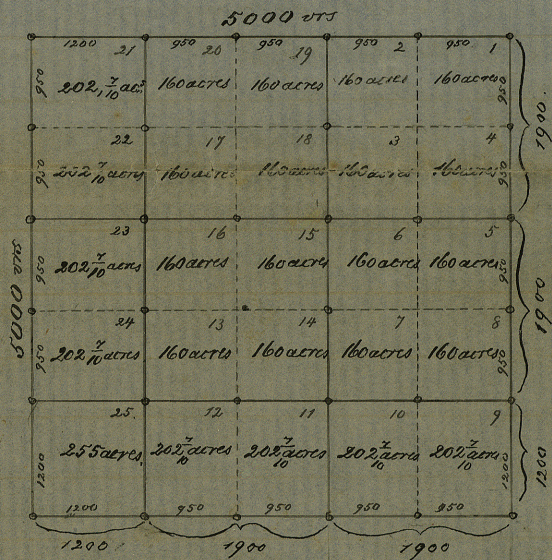 5000 vrs
1200 21 950 20 950 19 950 2 950 1
950 202, 7/10 acs 160 acres 160 acres 160 acres 160 acres 950
1900.
22 17 18 3 4
950 202 7/10 acres 160 acres 160 acres 160 acres 160 acres 950
23 16 15 6 5
950 202 7/10 acres 160 acres 160 acres 160 acres 160 acres 950
5000 vrs
1900
24 13 14 7 8
950 202 7/10 acres 160 acres 160 acres 160 acres 160 acres 950
25. 12 11 10 9
255 acres. 202 7/10 acres 202 7/10 acres 202 7/10 acres 202 7/10 acres
1200 1200 1200
1200 950 950 950 950
1200 1900 1900